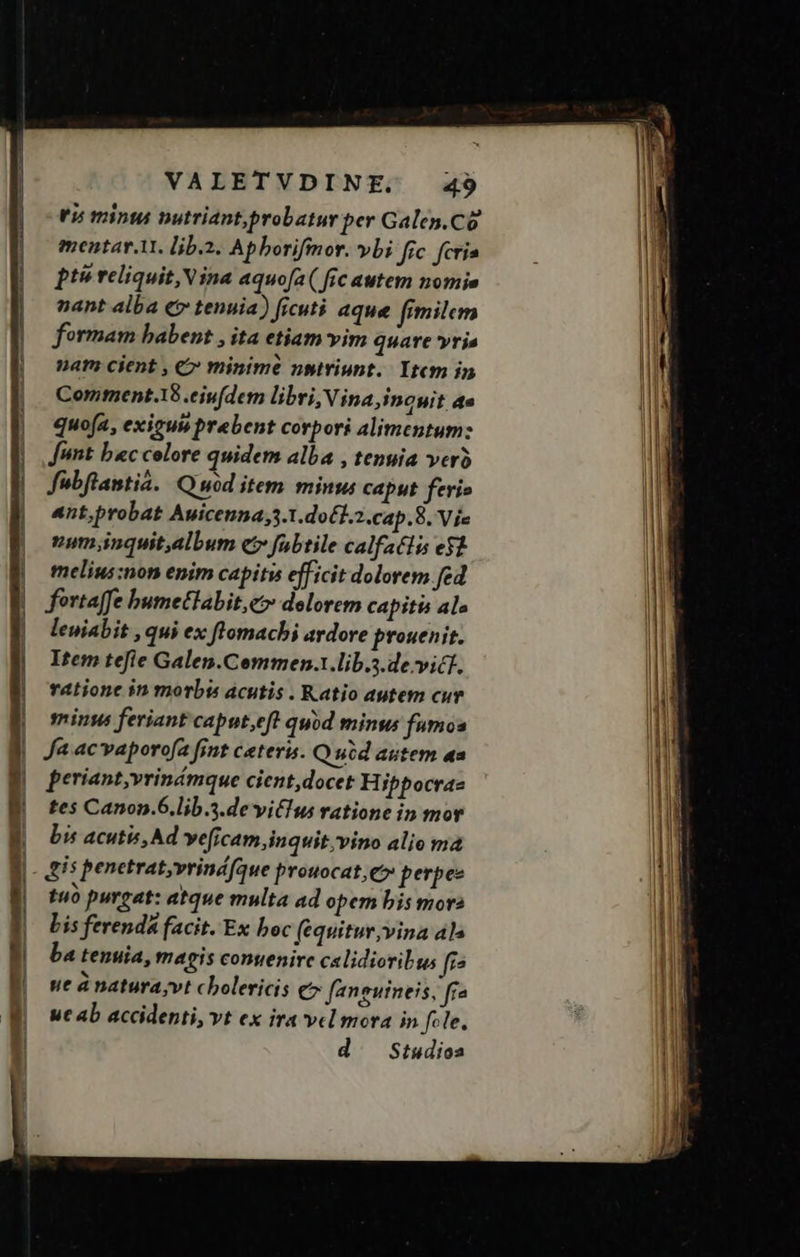 VALETVDINE. 49
vis minus nutriant, probatur per Galen. Cō
mentar.11. lib.2. Aphorismor. vbi sic scri=
ptū reliquit, Vina aquosa ( sic autem nomi=
nant alba & tenuia) sicuti aquæ similem
formam habent , ita etiam vim quare vri=
nam cient , & minimè nutriunt. Item in
Comment.18.eiusdem libri, Vina, inquit a=
quosa, exiguū præbent corpori alimentum:
sunt hæc colore quidem alba , tenuia verò
substantià. Quòd item minus caput feri=
ant, probat Auicenna,3.1.doct.2.cap.8. Vi=
num, inquit, album & subtile calfactis est
melius: non enim capitis efficit dolorem sed
fortasse humectabit, & dolorem capitis al=
leuiabit , qui ex stomachi ardore prouenit.
Item teste Galen. Commen.1.lib.3.de vict.
ratione in morbis acutis . Ratio autem cur
minus feriant caput, est quòd minus fumo=
sa ac vaporosa sint cæteris. Quòd autem a=
periant, vrinámque cient, docet Hippocra=
tes Canon.6.lib.3.de victus ratione in mor
bis acutis, Ad vesicam, inquit, vino alio ma
gis penetrat, vrinásque prouocat, & perpe=
tuò purgat: atque multa ad opem his mor=
bis ferendā facit. Ex hoc sequitur, vina al=
ba tenuia, magis conuenire calidioribus si=
ue à natura, vt cholericis & sanguineis, si=
ue ab accidenti, vt ex ira vel mora in sole.
d Studio=